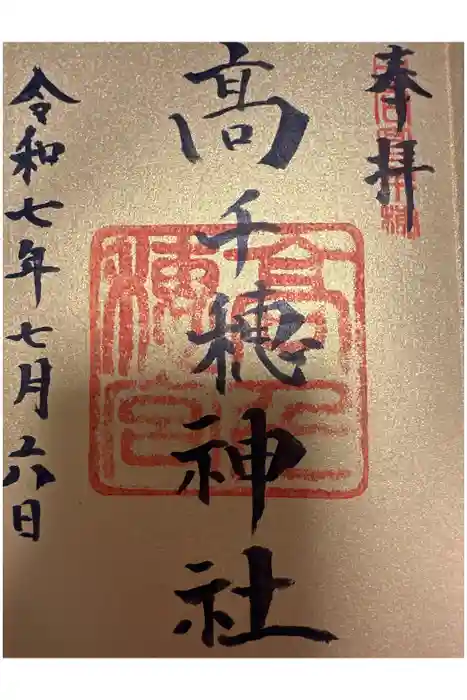 奉拝
高千穂神社
令和七年七月六日